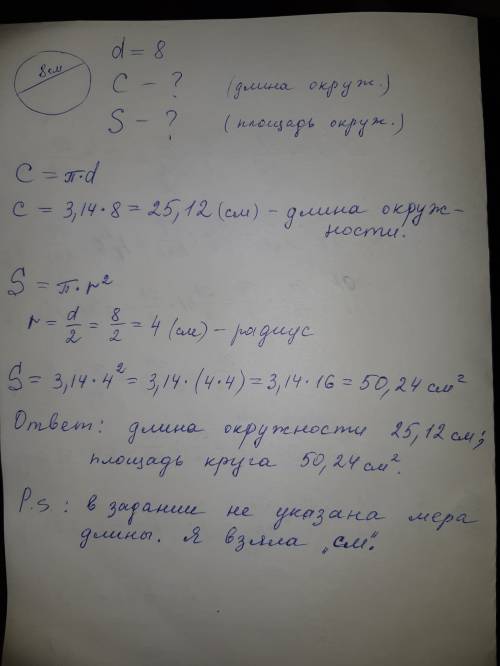 8см
d = 8
C - ? (длина окруж.)
S - ? (площадь окруж.)
C = π·d
C = 3,14·8 = 25,12 (см) - длина окруж-
ности.
S = π·r²
r = d/2 = 8/2 = 4 (см) - радиус
S = 3,14·4² = 3,14·(4·4) = 3,14·16 = 50,24 см²
Ответ: длина окружности 25,12 см;
площадь круга 50,24 см².
P.s.: в задании не указана мера
длины. Я взяла „см".